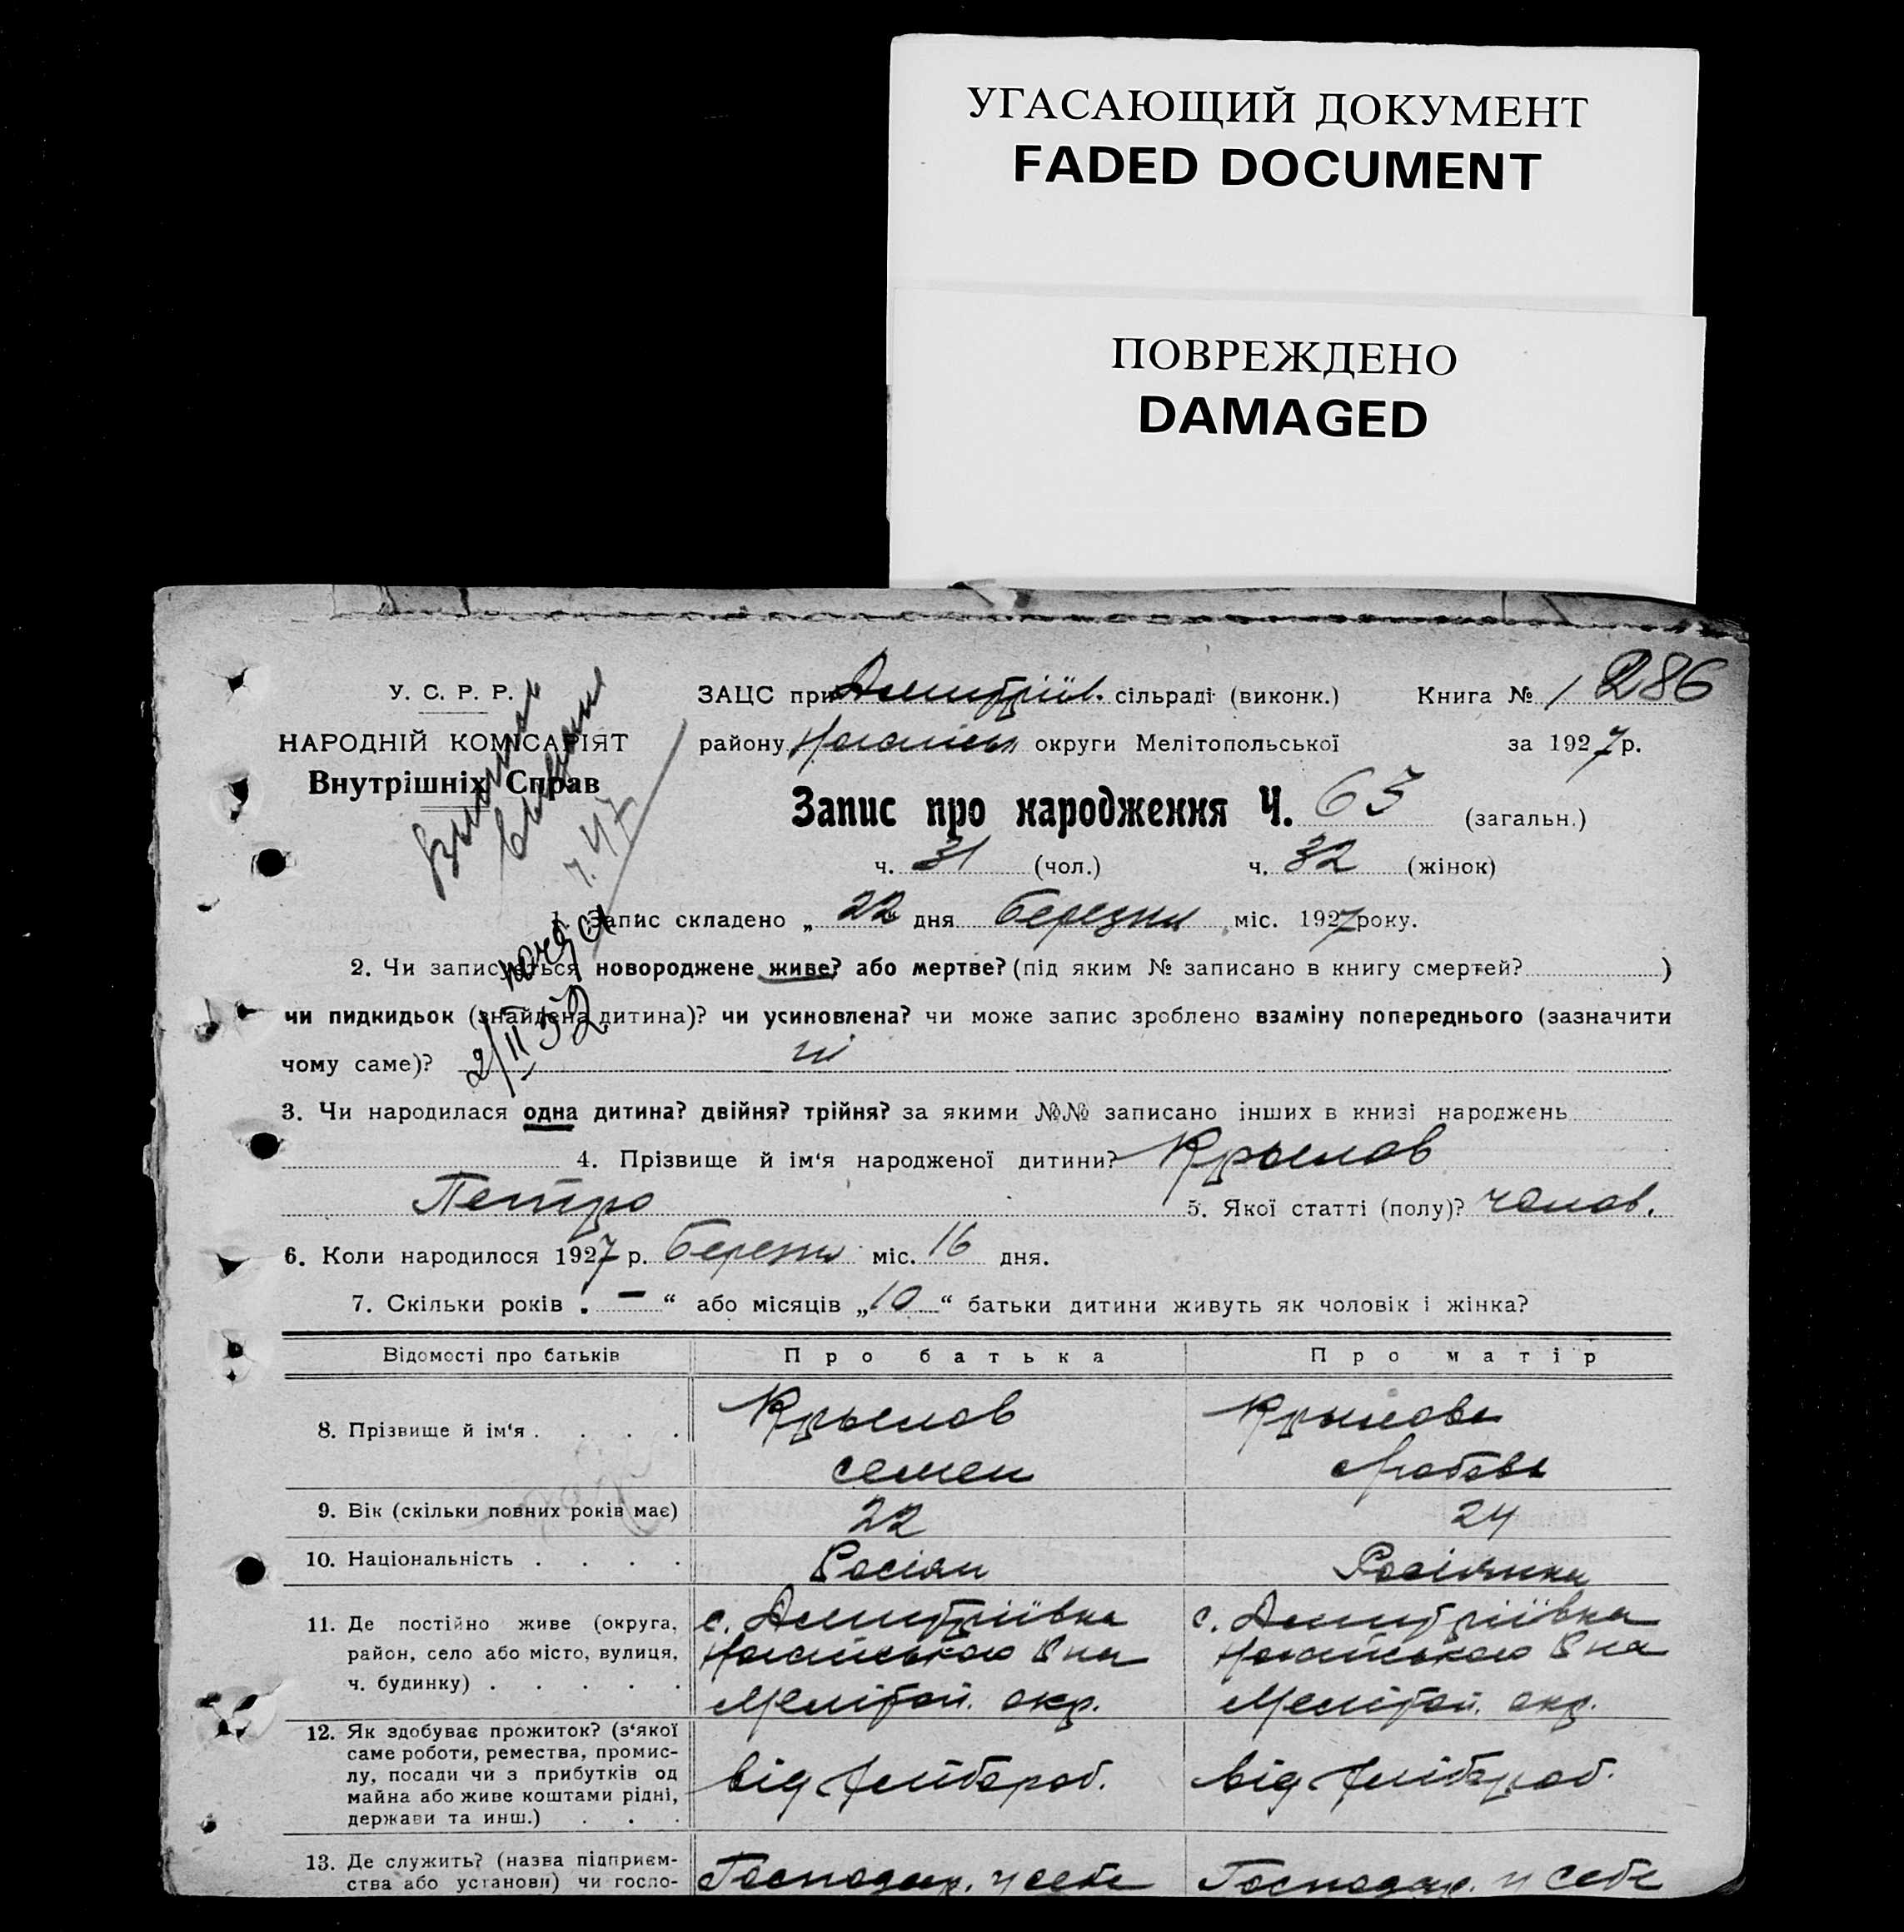 УГАСАЮЩИЙ ДОКУМЕНТ
FADED DOCUMENT
ПОВРЕЖДЕНО
DAMAGED
286
У. С. Р. Р.
НАРОДНІЙ КОМІСАРІЯТ
Внутрішніх Справ
ЗАЦС при Дмитріїв. сільраді (виконк.) Книга № 1
району округи Мелітопольської за 1927 р.
Запис про народження Ч. 63 (загальн.)
ч. 31 (чол.) ч. 32 (жінок)
1. Запис складено „ 22 дня березня міс. 1927 року.
2. Чи записується новороджене живе? або мертве? (під яким № записано в книгу смертей? )
чи пидкидьок (знайдена дитина)? чи усиновлена? чи може запис зроблено взаміну попереднього (зазначити
чому саме)? ні
2/II 52
3. Чи народилася одна дитина? двійня? трійня? за якими №№ записано інших в книзі народжень
4. Прізвище й ім'я народженої дитини? Крылов
Петро 5. Якої статті (полу)? чолов.
6. Коли народилося 1927 р. березня міс. 16 дня.
7. Скільки років „ — “ або місяців „ 10 “ батьки дитини живуть як чоловік і жінка?
Відомості про батьків Про батька Про матір
8. Прізвище й ім'я . . . . Крылов Крылова
Семен Любовь
9. Вік (скільки повних років має) 22 24
10. Національність . . . . Росіян Росіянка
11. Де постійно живе (округа, с. Дмитріївка с. Дмитріївка
район, село або місто, вулиця, Ногайського Р на Ногайського Р на
ч. будинку) . . . . . Мелітоп. окр. Мелітоп. окр.
12. Як здобуває прожиток? (з'якої
саме роботи, ремества, промис-
лу, посади чи з прибутків од від хлібороб. від хлібороб.
майна або живе коштами рідні,
держави та инш.) . . .
13. Де служить? (назва підприєм- Господар. у себе Господар. у себе
ства або установи) чи госпо-